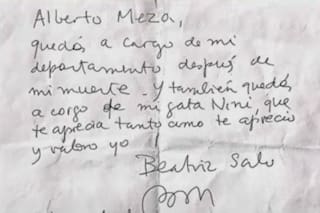 Alberto Meza,
quedás a cargo de mi
departamento después de
mi muerte. Y también quedás
a cargo de mi gata Nini, que
te aprecia tanto como te aprecio
y valoro yo
Beatriz Sarlo